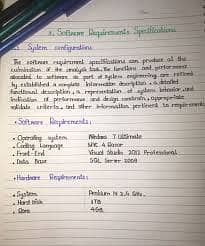 2. Software Requirements Specifications
System configurations
The software requirement specifications can produce at the
culmination of the analysis task. The function and performance
allocated to software as part of system engineering are refined
by established a complete information description, a detailed
functional description, a representation of system behavior, and
indication of performance and design constrain, appropriate
validate criteria, and other information pertinent to requirements.
• Software Requirements:
• Operating system Windows 7 Ultimate
• Coding Language MVC 4 Razor
• Front-End Visual Studio 2012 Professional
• Data Base SQL Server 2008
• Hardware Requirements:
• System Pentium IV 2.4 GHz.
• Hard Disk 1TB
• Ram 4GB